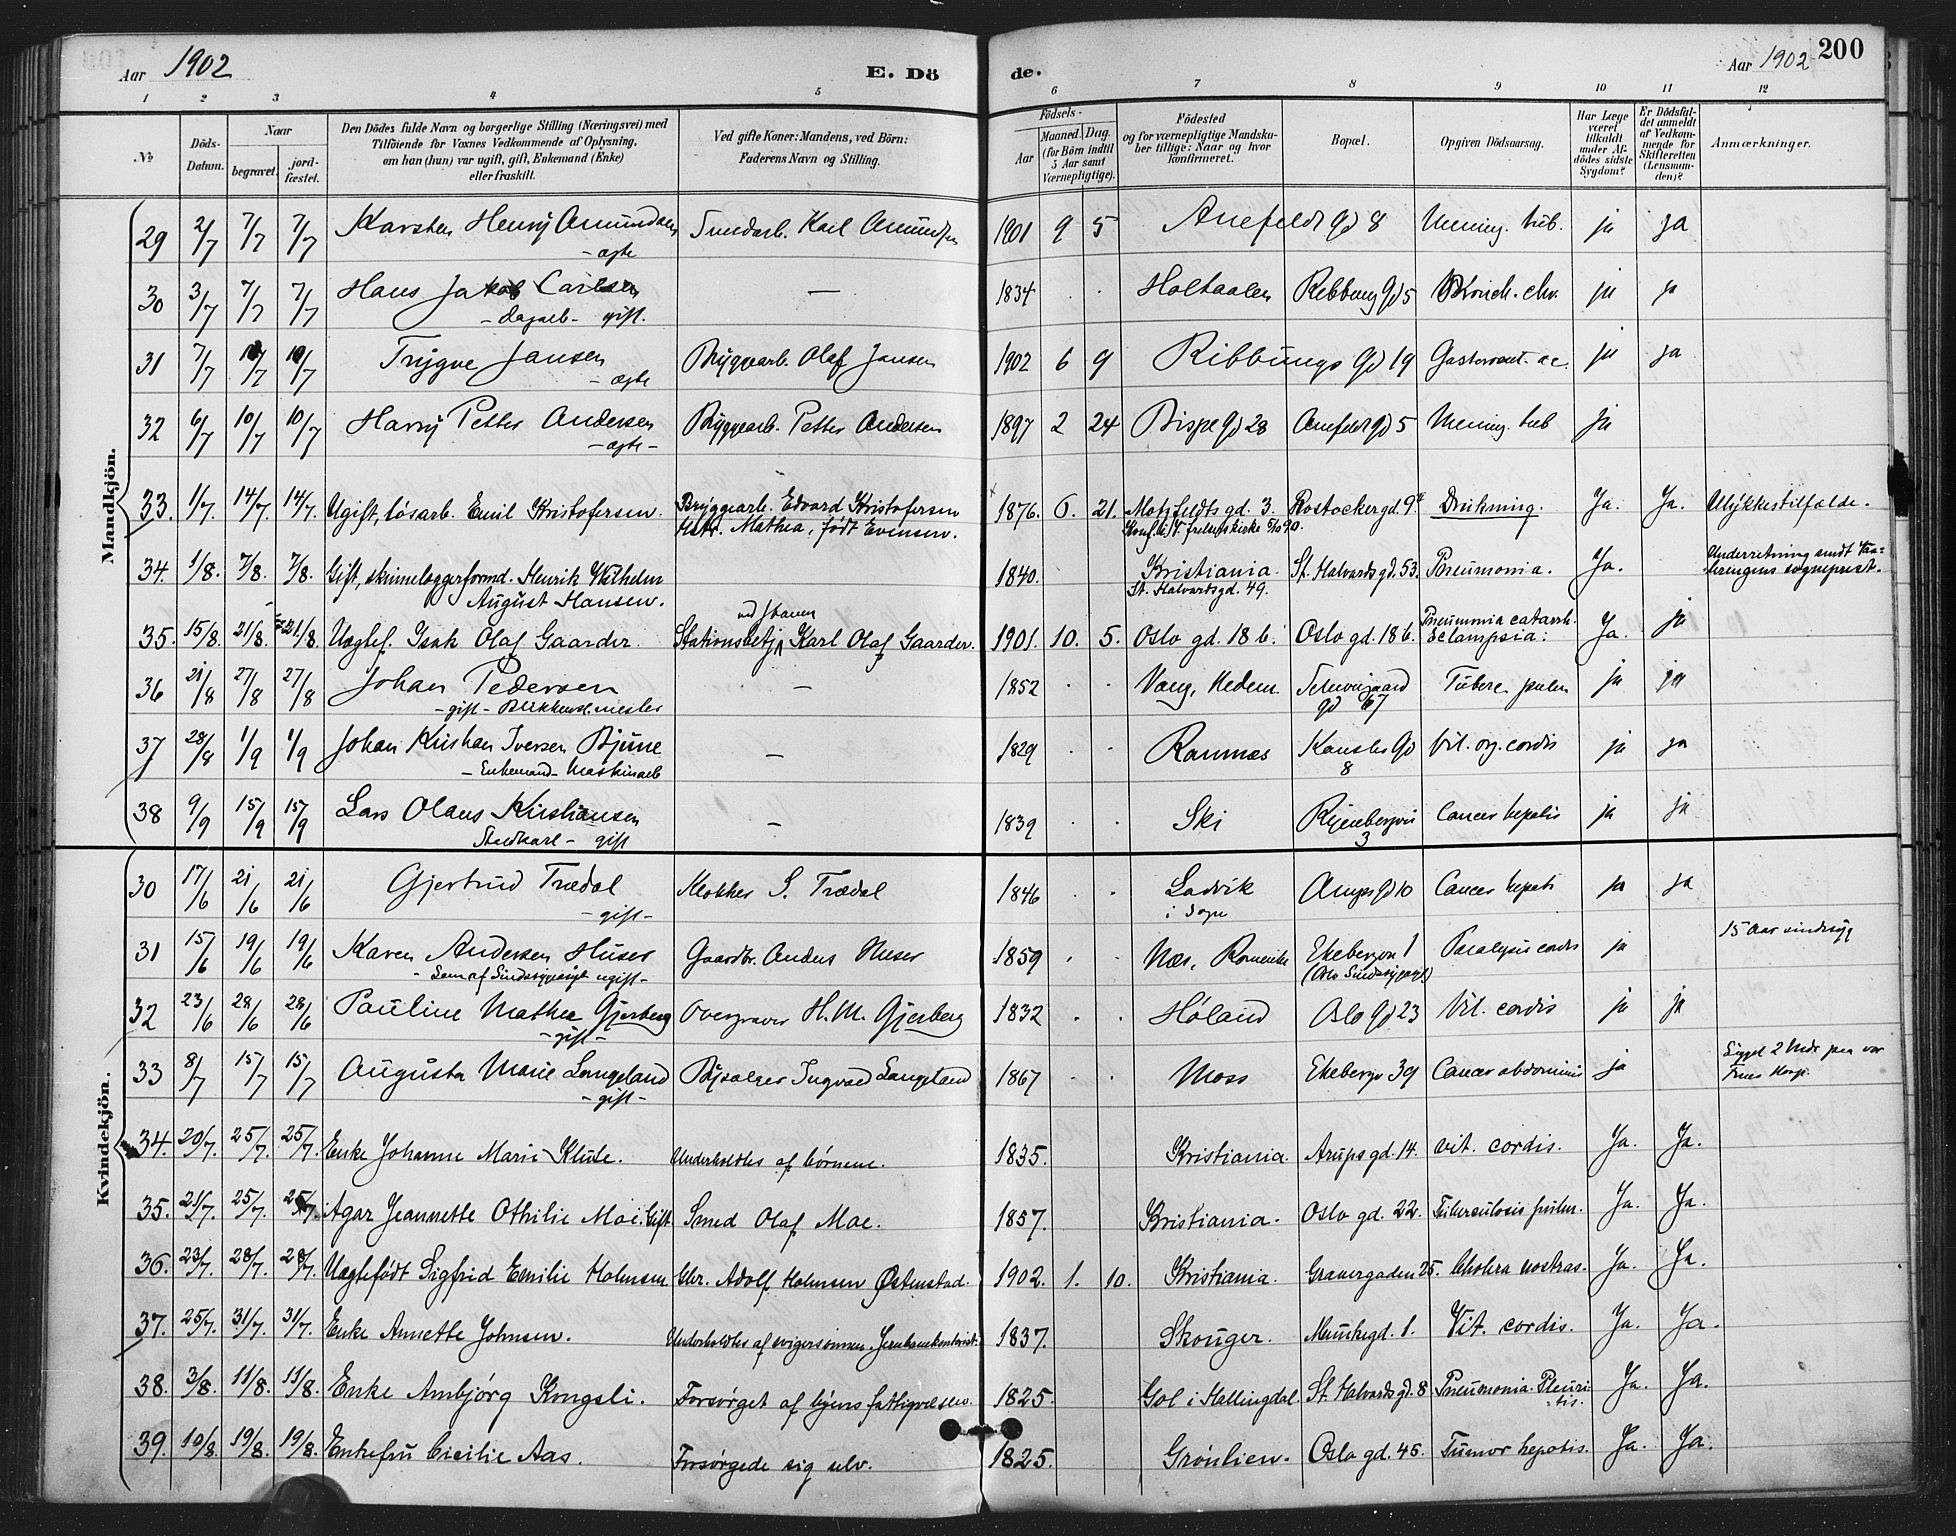 Aar 1902 E. Döde. Aar 1902 200
1 2 3 4 5 6 7 8 9 10 11 12
№ Döds-Datum. Naar begravet. jordfæstet. Den Dödes fulde Navn og borgerlige Stilling (Næringsvei) med Tilföiende for Voxnes Vedkommende af Oplysning, om han (hun) var ugift, gift, Enkemand (Enke) eller fraskilt. Ved gifte Koner: Mandens, ved Börn: Faderens Navn og Stilling. Födsels- Aar Maaned. Dag. (for Börn indtil 5 Aar samt Værnepligtige). Födested og for værnepligtige Mandskaber tillige: Naar og hvor konfirmeret. Bopæl. Opgiven Dödsaarsag. Har Læge været tilkaldt under Afdödes sidste Sygdom? Er Dödsfaldet anmeldt af Vedkommende for Skifteretten (Lensmanden)? Anmærkninger.
Mandkjön.
29 2/7 7/7 7/7 Karsten Henry Amundsen Karl Amundsen 1901 9 5 Arnefeldts gd 8 Mening. tub. ja ja
- ægte
30 3/7 7/7 7/7 Hans Jakob Carlsen — 1834 . . Holtaalen Ribbung gd 5 Bronch. chr. ja ja
- dagarb - gift.
31 7/7 10/7 10/7 Trygve Jansen Bryggearb. Olaf Jansen 1902 6 9 Ribbungs gd 19 ac. ja ja
- ægte
32 6/7 10/7 10/7 Harry Petter Andersen Bryggearb. Petter Andersen 1897 2 24 Bispe gd 28 Arnefeldt gd 5 Mening. tub ja
- ægte -
33. 1/7. 14/7. 14/7. Ugift, løsarb. Emil Kristofersen. Bryggearb. Edvard Kristofersen 1876. 6. 21. Motzfeldts gd. 3. Rostockergd. 9 Drukning. Ja. Ja. Ulykkestilfælde.
Mathea, født Evensen.
34. 1/8. 7/8. 7/8. Gift, skinnelæggerformd. Henrik Wilhelm 1840. Kristiania. St. Halvards gd. 53. Pneumonia. Ja. Underretning sendt Vaa-
August Hansen. St. Halvardsgd. 49. lerengens sogneprest.
35. 15/8. 21/8. 21/8. Uægtef. Isak Olaf Gaarder. Stationsbetj. ved Jbanen Karl Olaf Gaarder. 1901. 10. 5. Oslo gd. 18 b. Oslo gd. 18 b. Pneumonia catarrh. Eclampsia. Ja. ja
36 21/8 27/8 27/8 Johan Pedersen — 1852 . . Vang, Hedem. Schweigaard gd 67 Tuberc. pulm ja ja
- gift - Blikkensl.mester
37 28/8 1/9 1/9 Johan Kristian Iversen Bjune — 1829 . . Ramnæs Kansler gd 8 Vit. org. cordis ja ja
- Enkemand - Maskinarb
38 9/9 15/9 15/9 Lars Olaus Kristiansen — 1839 . . Ski 3 Cancer hepatis ja ja
Stadkarl - gift
Kvindekjön.
30 17/6 21/6 21/6 Gjertrud Trædal Klokker S. Trædal 1846 . . Ladvik Arups gd 10 Cancer hepati ja ja
- gift - i Sogn
31 15/6 19/6 19/6 Karen Andersen Huser Gaardbr. Anders Huser 1859 . . Næs, Romerike Ekebergvn 1 Paralysis cordis ja 15 Aar sindssyg
- Lem af Sindssygeasyl ugift - (Oslo Sindssygeasyl)
32 23/6 28/6 28/6 Pauline Mathea Gjerberg Overgraver H. M. Gjerberg 1832 . . Høland Oslo gd 23 Vit. cordis ja ja
- gift -
33 8/7 15/7 15/7 Augusta Marie Langeland Bysælger Ingvald Langeland 1867 . . Moss Ekebergv 39 Cancer abdominis ja Ligget 2 Mdr paa vor
- gift - Frues Hosp.
34. 20/7. 25/7. 25/7. Enke Johanne Marie Klute. Underholdtes af børnene. 1835. Kristiania. Arups gd. 14. Vit. cordis. Ja. Ja.
35. 21/7. 25/7. 25/7. Agar Jeannette Othilie Moe. Gift. Smed Olaf Moe. 1857. Kristiania. Oslo gd. 22. Tuberculosis pulm. Ja. Ja.
36. 23/7. 28/7. 28/7. Uægtefødt Sigfrid Emilie Holmsen Adolf Holmsen Østenstad. 1902. 1. 10. Kristiania. Gravergaden 25. Cholera nostras. Ja. Ja.
37. 25/7. 31/7. 31/7. Enke Annette Johnsen. Underholdtes af svigersønnen. Jernbanekontorist. 1837. Skouger. Munkegd. 1. Vit. cordis. Ja. Ja.
38. 3/8. 11/8. 11/8. Enke Ambjørg Kongsli. Forsørget af byens fattigvæsen. 1825. Gol i Hallingdal. St. Halvards gd. 8. Pneumonia. Pleuri-
tis. Ja. Ja.
39. 10/8. 19/8. 19/8. Enkefru Cicilie Aas. Forsørgede sig selv. 1825. Grønlien. Oslo gd. 45. Tumor hepatis. Ja. Ja.